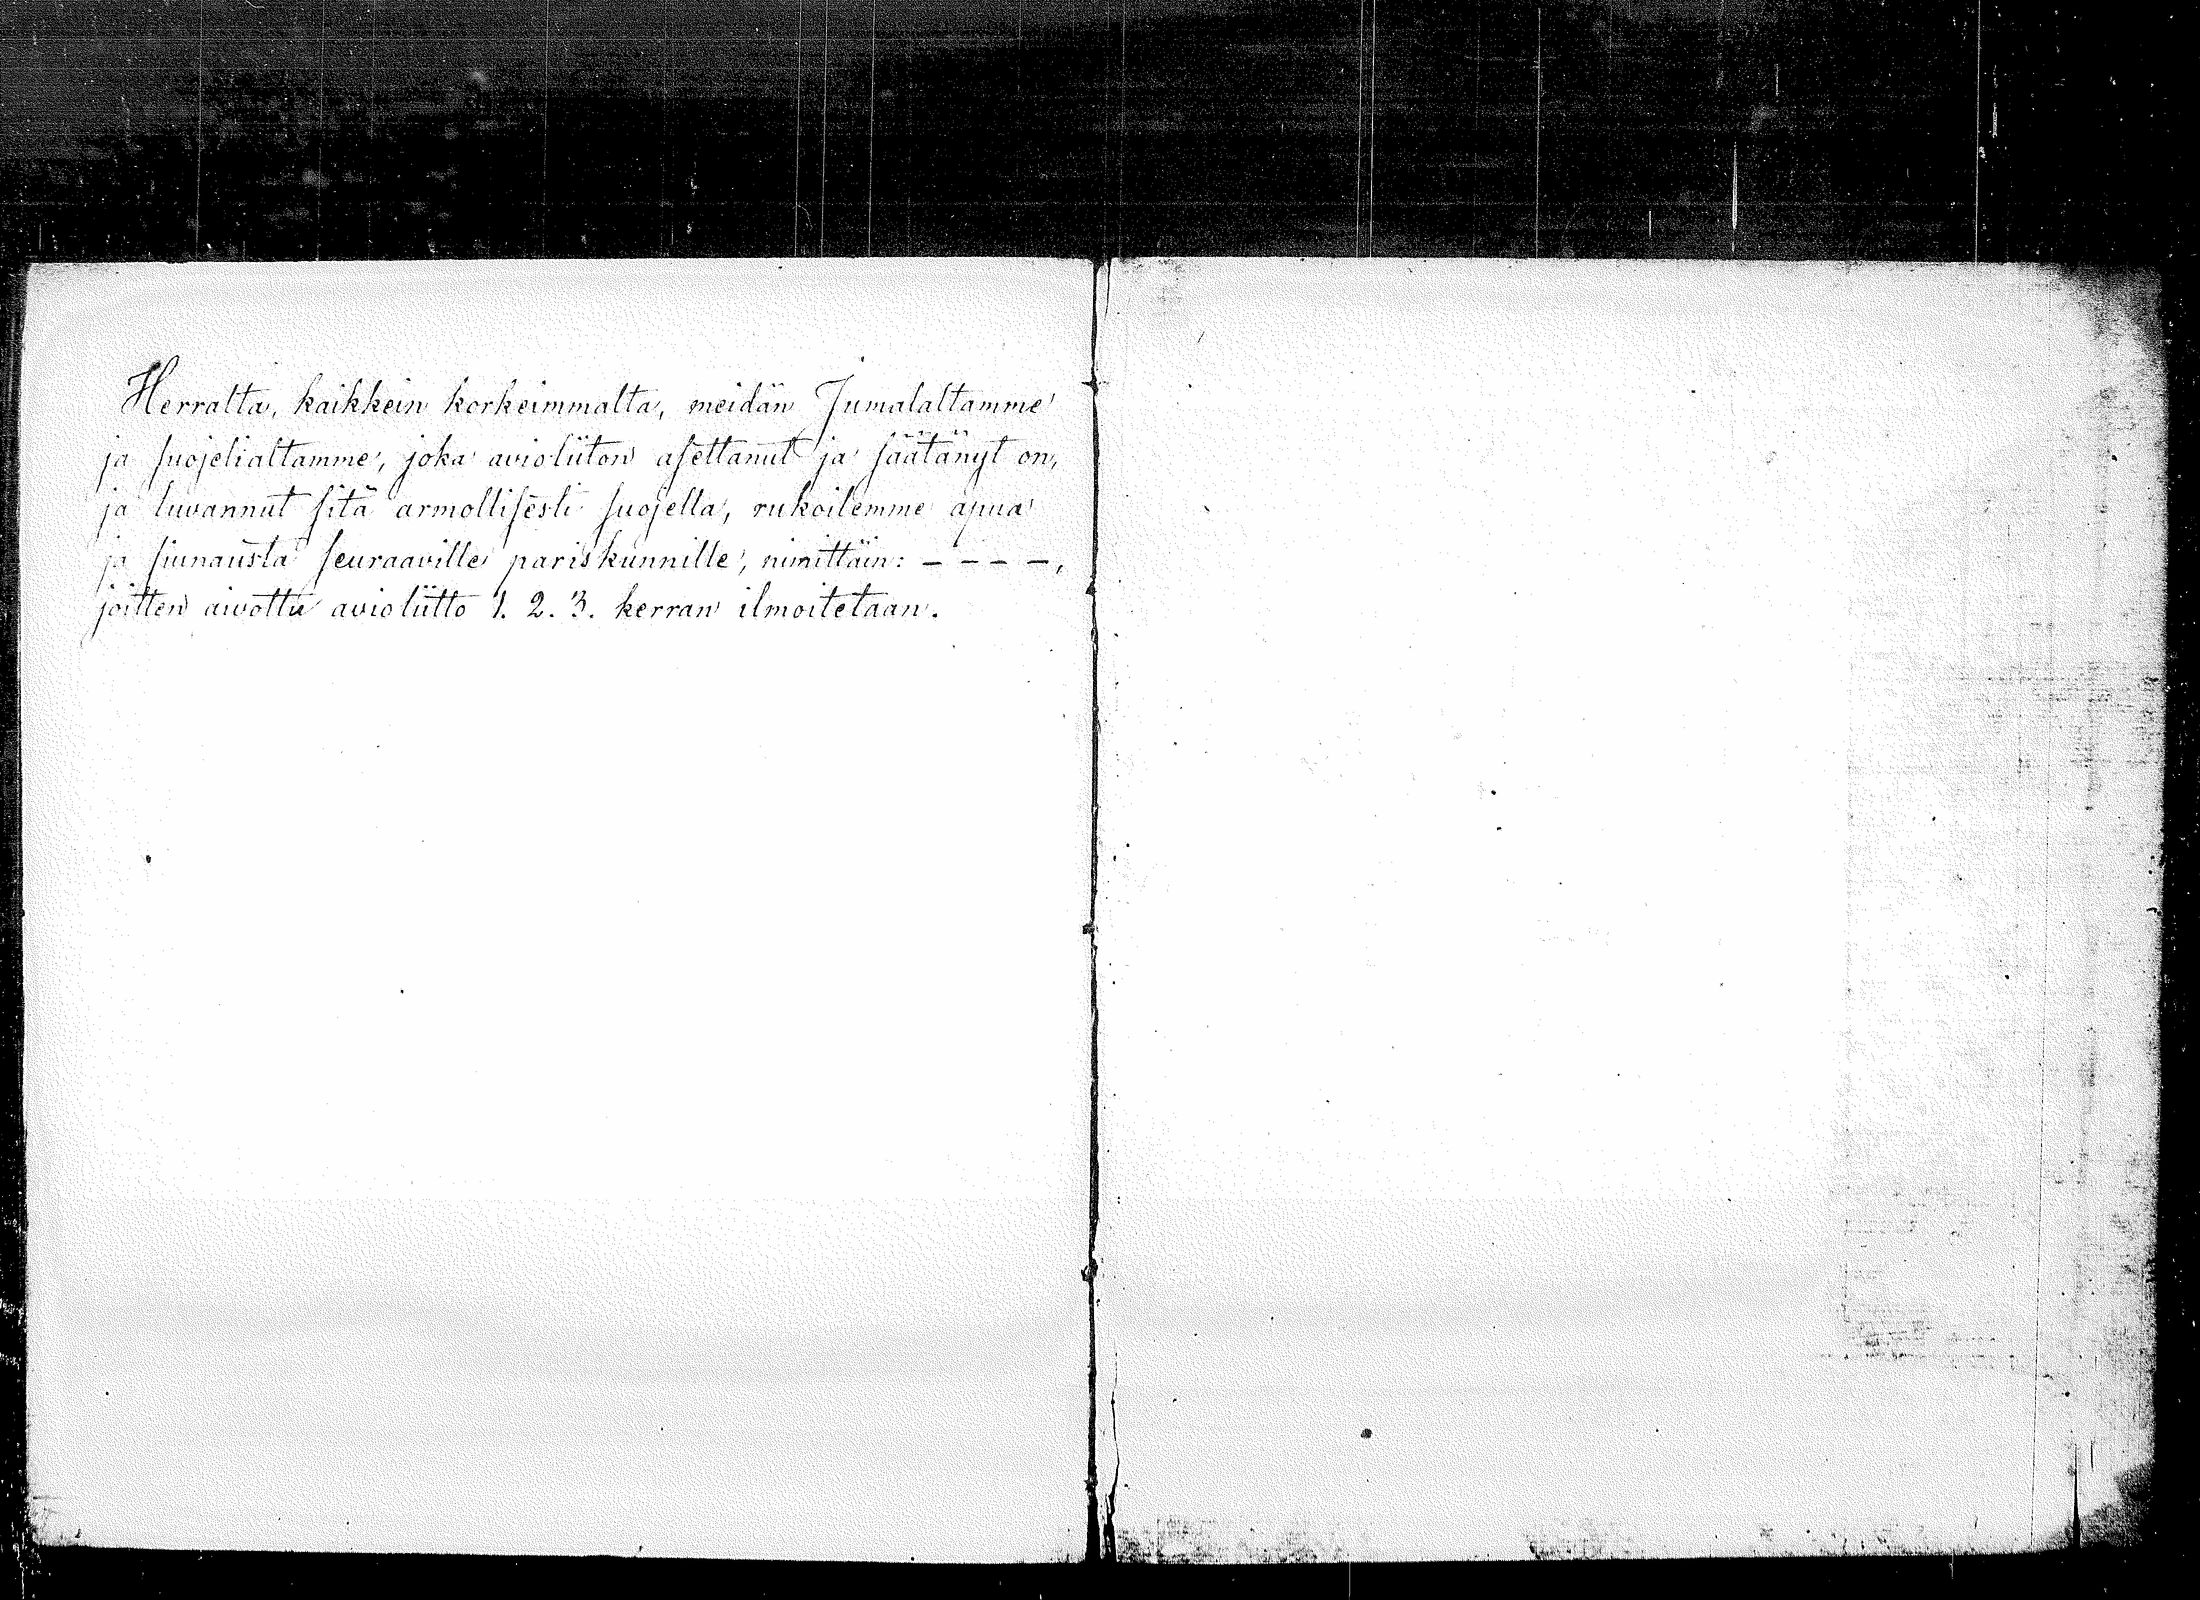 Herralta, kaikkein korkeimmalta, meidän Jumalaltamme
ja suojelialtamme, joka avioliiton asettanut ja säätänyt on,
ja luvannut sitä armollisesti suojella, rukoilemme apua
ja siunausta seuraaville pariskunnille, nimittäin: – – – –,
joitten aivottu avioliitto 1. 2. 3. kerran ilmoitetaan.